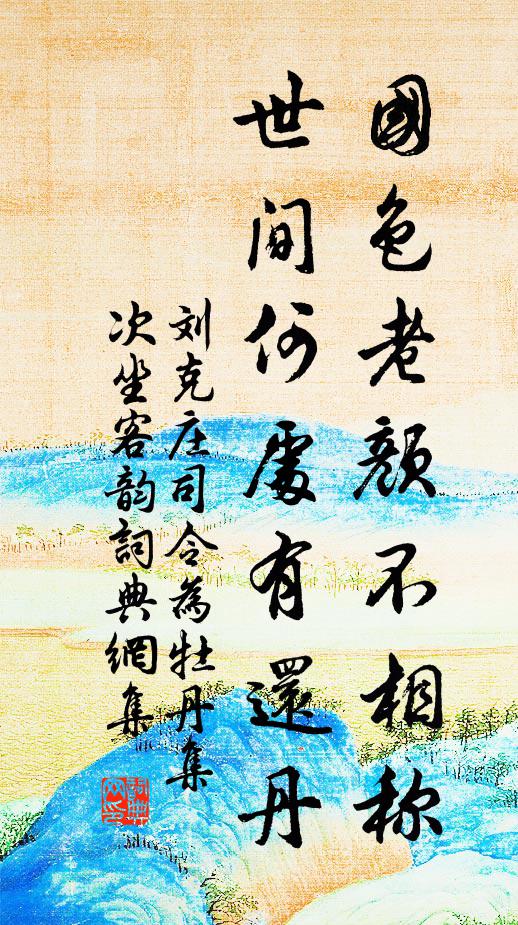 國色老顏不相称
世間何處有還丹
刘克庄司令為牡丹集
次坐客韵詞典網集